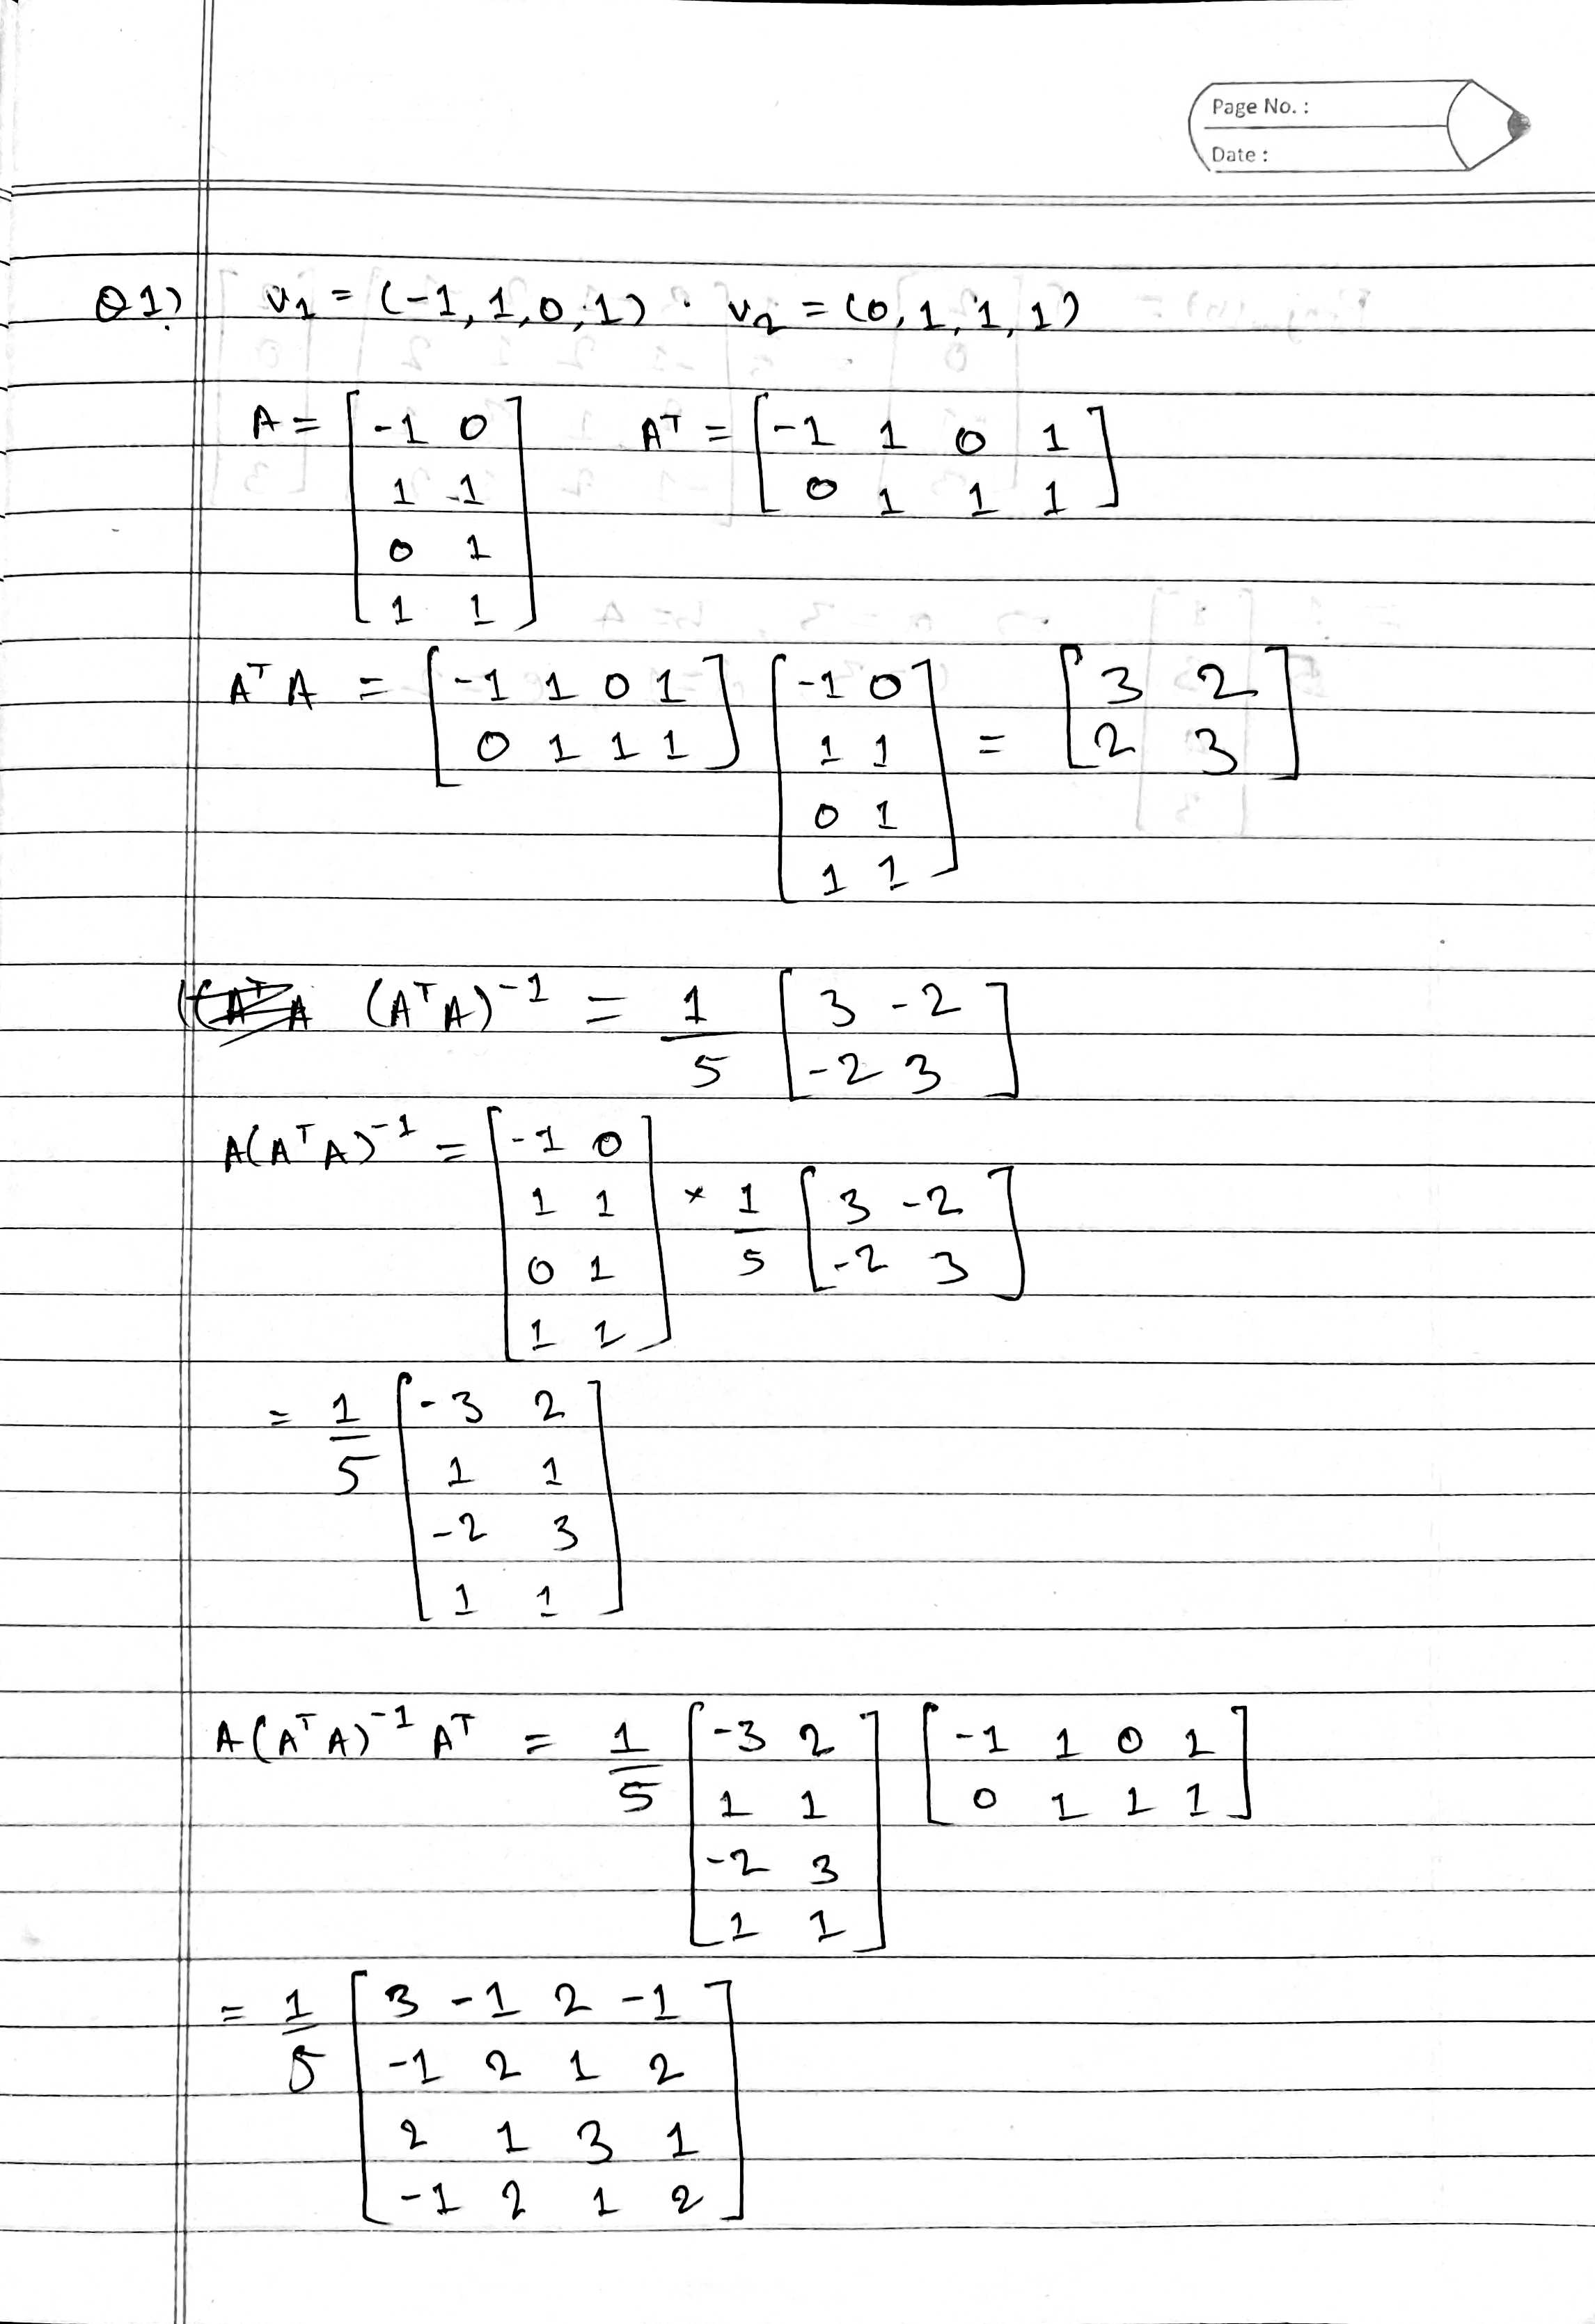 Page No. :
Date :
Q1) v₁ = (-1, 1, 0, 1) . v₂ = (0, 1, 1, 1)
A = [-1 0; 1 1; 0 1; 1 1] Aᵀ = [-1 1 0 1; 0 1 1 1]
AᵀA = [-1 1 0 1; 0 1 1 1] [-1 0; 1 1; 0 1; 1 1] = [3 2; 2 3]
(AᵀA)⁻¹ = 1/5 [3 -2; -2 3]
A(AᵀA)⁻¹ = [-1 0; 1 1; 0 1; 1 1] × 1/5 [3 -2; -2 3]
= 1/5 [-3 2; 1 1; -2 3; 1 1]
A(AᵀA)⁻¹Aᵀ = 1/5 [-3 2; 1 1; -2 3; 1 1] [-1 1 0 1; 0 1 1 1]
= 1/5 [3 -1 2 -1; -1 2 1 2; 2 1 3 1; -1 2 1 2]